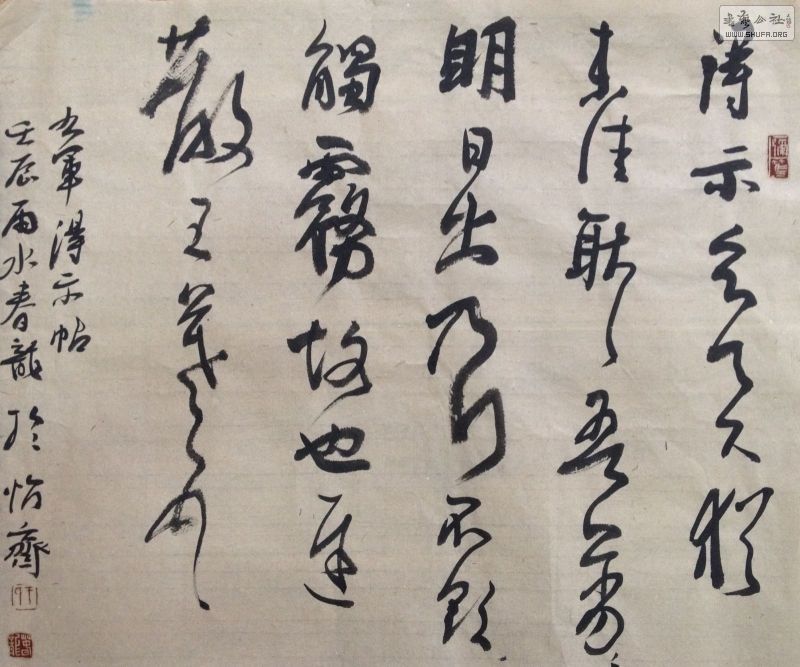 得示知足下猶
未佳耿耿吾亦劣劣
明日出乃行不欲
觸霧故也遲
散王羲之頓首
右軍得示帖
壬辰雨水春龍於怡齋
書藝公社
WWW.SHUFA.ORG